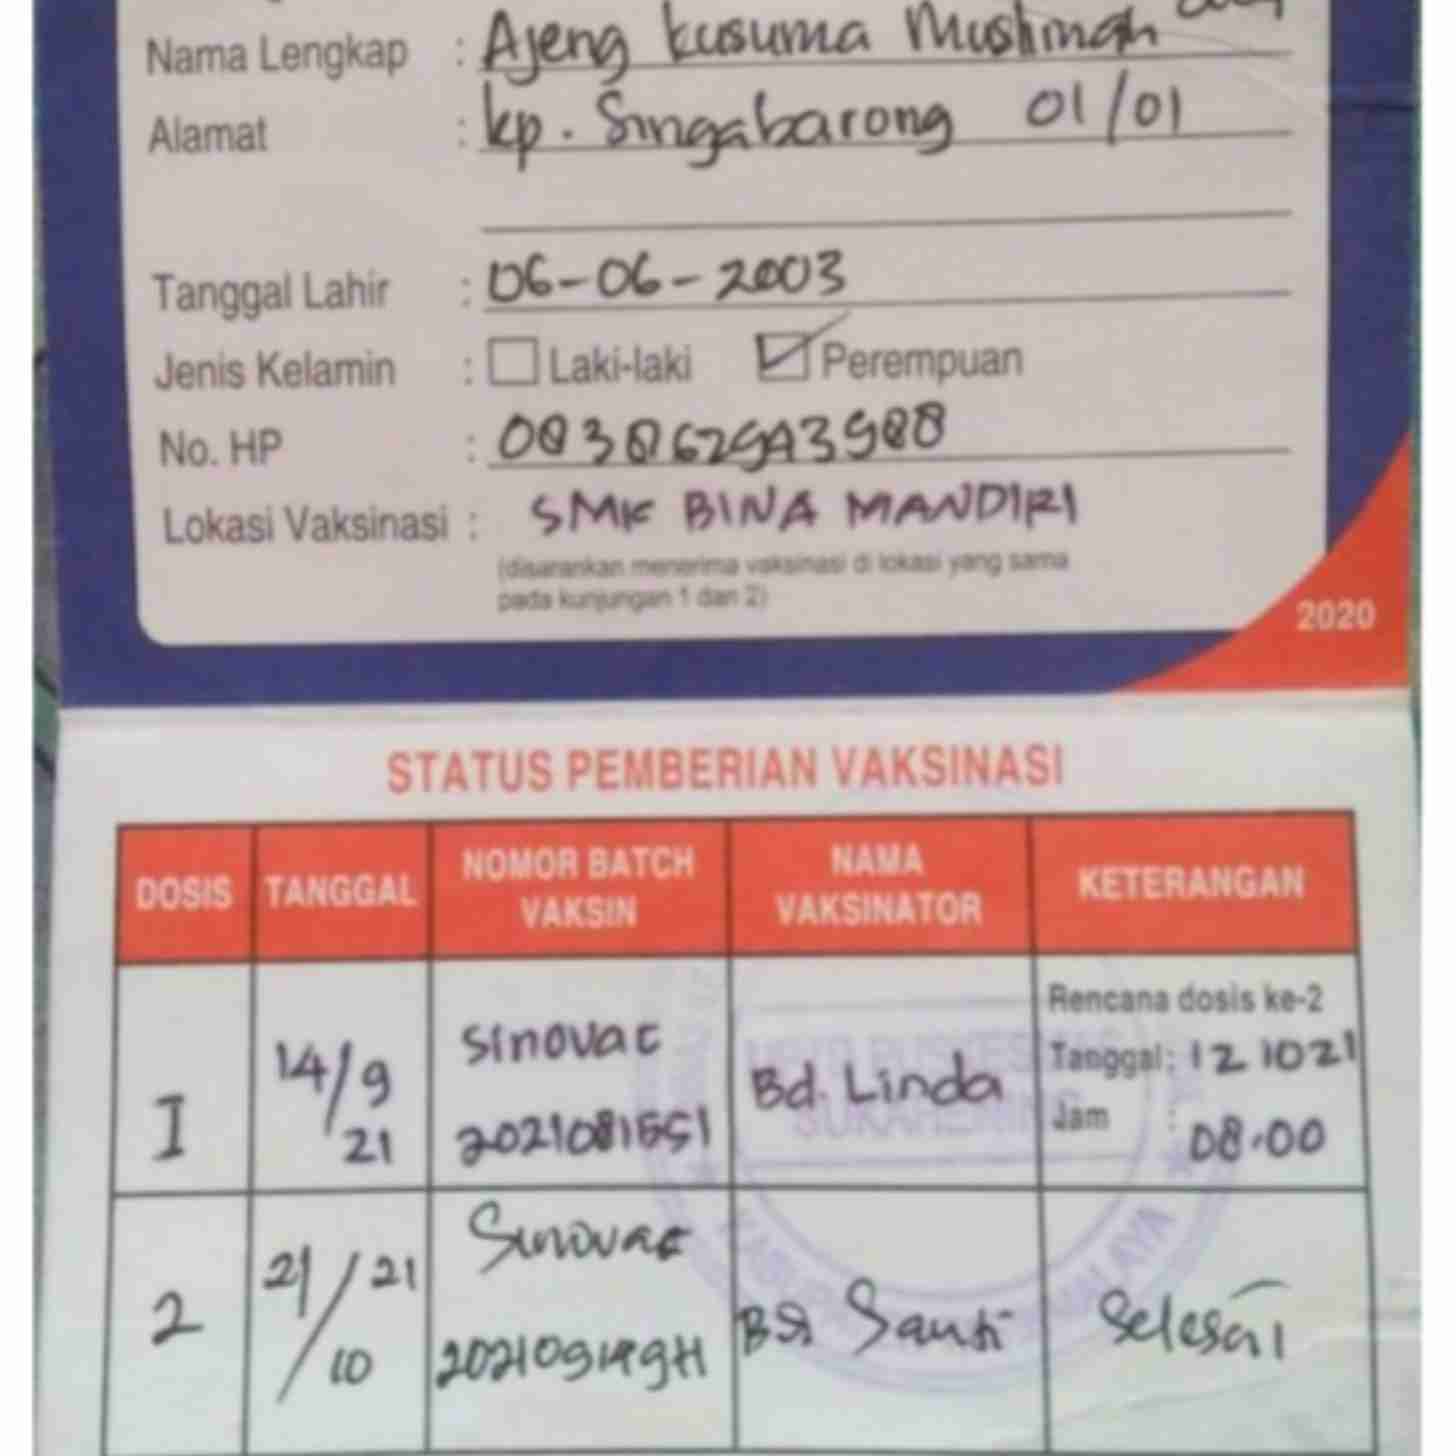 Nama Lengkap : Ajeng Kusuma Muslimah
Alamat : kp. Singabarong 01/01
Tanggal Lahir : 06-06-2003
Jenis Kelamin : Laki-laki Perempuan
No. HP :
Lokasi Vaksinasi : SMK BINA MANDIRI
(disarankan menerima vaksinasi di lokasi yang sama
pada kunjungan 1 dan 2)
2020
STATUS PEMBERIAN VAKSINASI
DOSIS TANGGAL NOMOR BATCH VAKSIN NAMA VAKSINATOR KETERANGAN
I 14/9 21 Sinovac Bd. Linda
Rencana dosis ke-2
Tanggal: 12 1021
Jam : 08.00
2 21/10 21 Sinovac Selesai